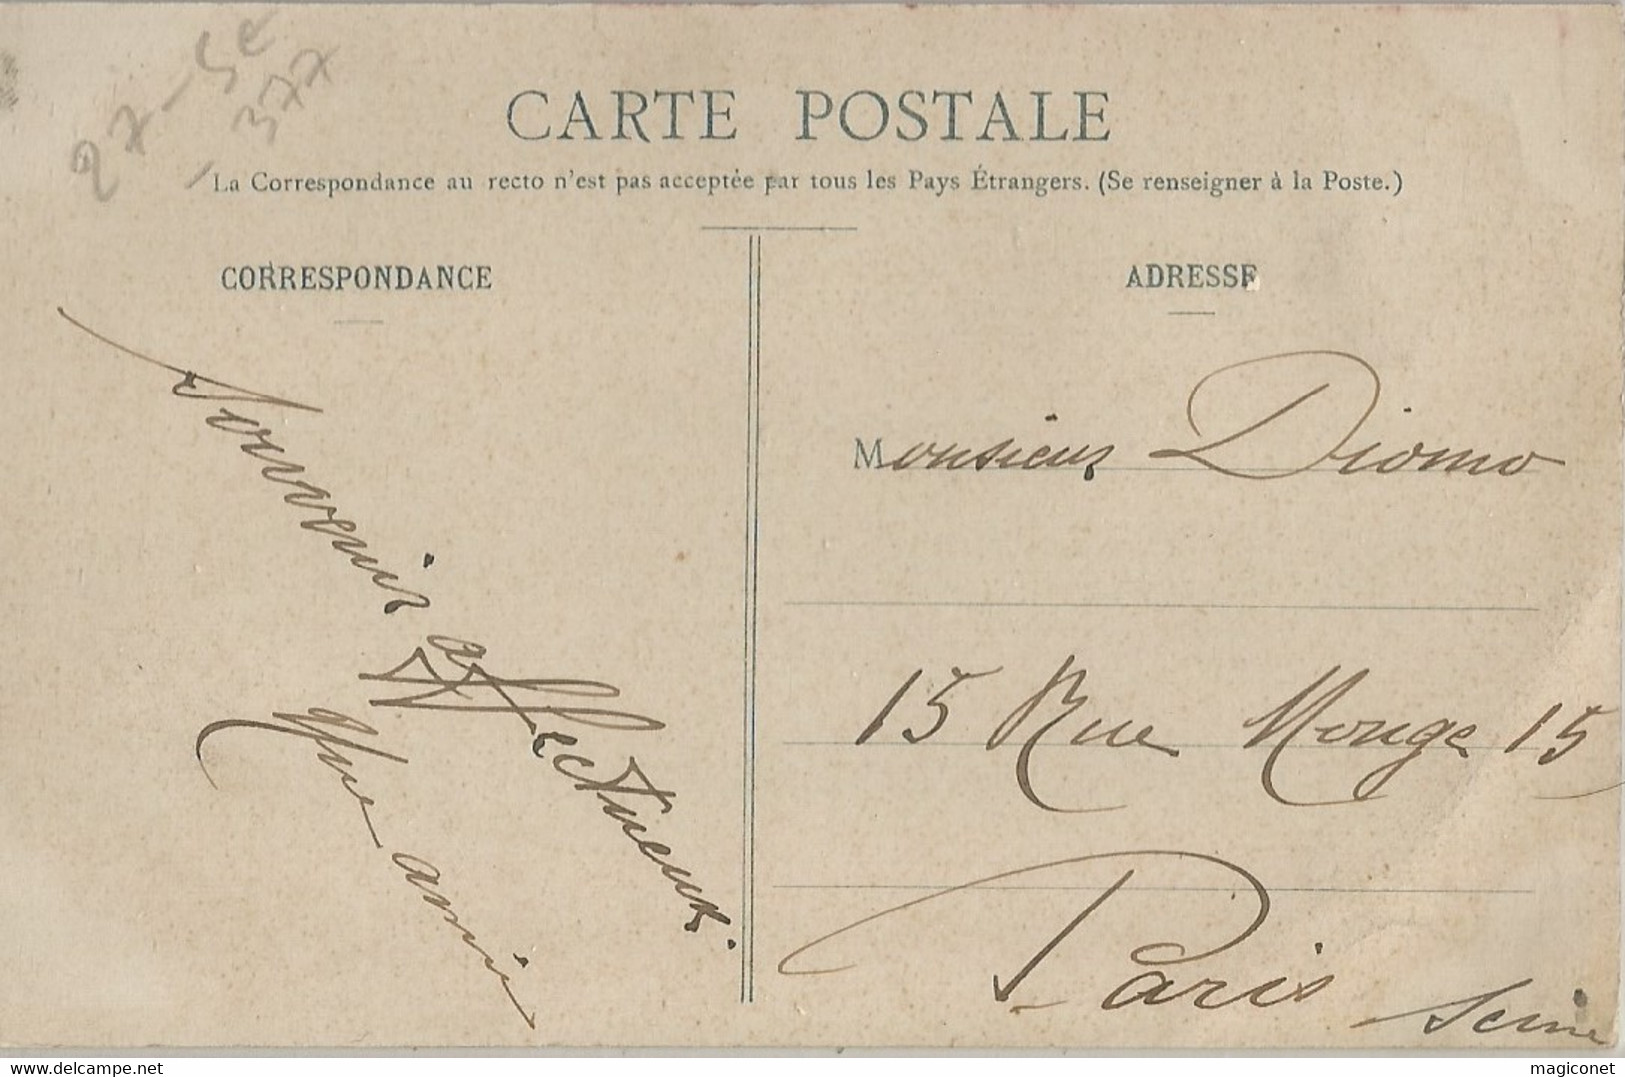 27-5e
- 377
CARTE POSTALE
La Correspondance au recto n'est pas acceptée par tous les Pays Étrangers. (Se renseigner à la Poste.)
CORRESPONDANCE
Souvenir affectueux.
Une amie
ADRESSE
Monsieur Diomo
15 Rue Monge 15
Paris
Seine
delcampe.net
magiconet